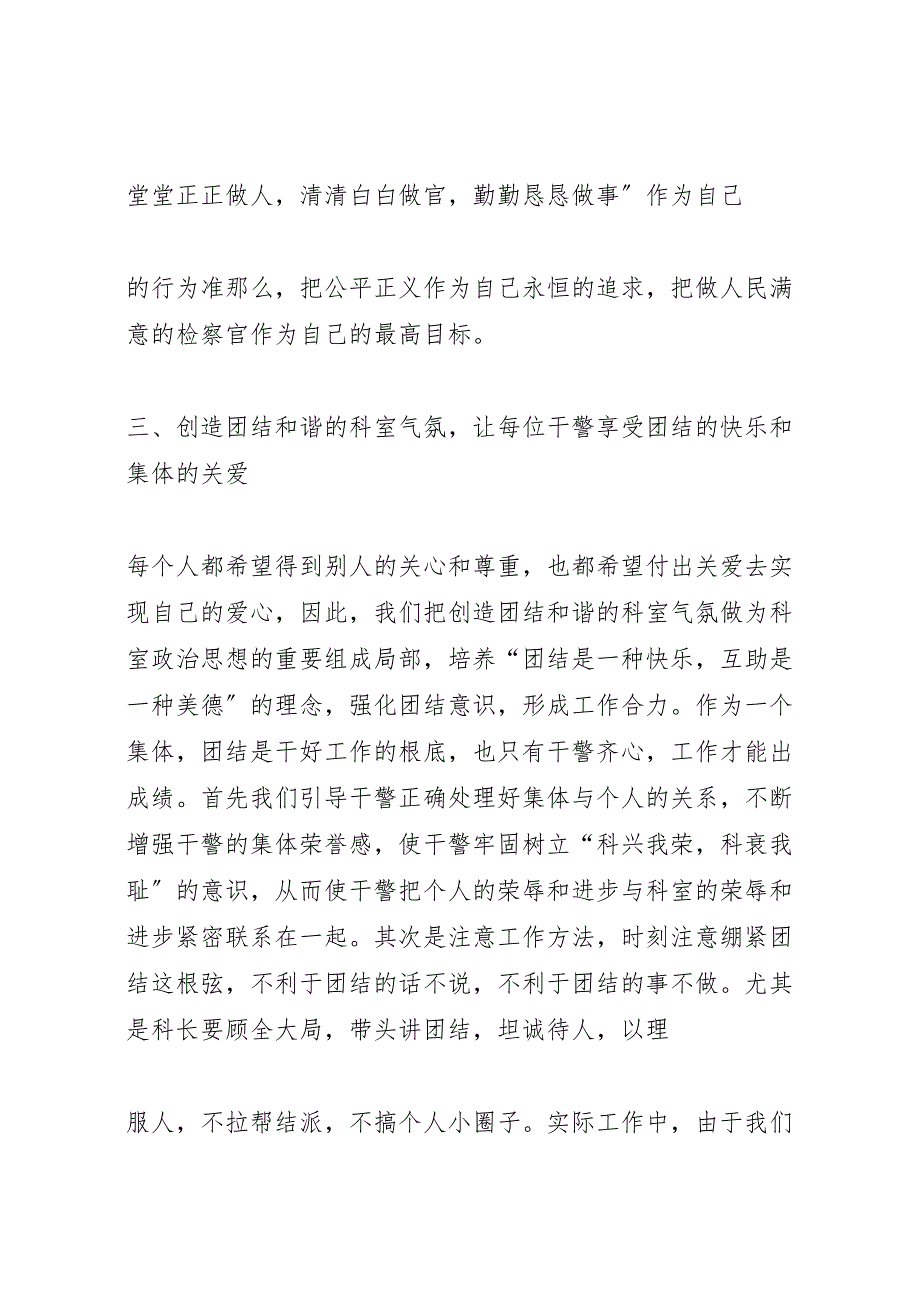 堂堂正正做人，清清白白做官，勤勤恳恳做事〞作为自己
的行为准那么，把公平正义作为自己永恒的追求，把做人民满
意的检察官作为自己的最高目标。
三、创造团结和谐的科室气氛，让每位干警享受团结的快乐和
集体的关爱
每个人都希望得到别人的关心和尊重，也都希望付出关爱去实
现自己的爱心，因此，我们把创造团结和谐的科室气氛做为科
室政治思想的重要组成局部，培养“团结是一种快乐，互助是
一种美德〞的理念，强化团结意识，形成工作合力。作为一个
集体，团结是干好工作的根底，也只有干警齐心，工作才能出
成绩。首先我们引导干警正确处理好集体与个人的关系，不断
增强干警的集体荣誉感，使干警牢固树立“科兴我荣，科衰我
耻〞的意识，从而使干警把个人的荣辱和进步与科室的荣辱和
进步紧密联系在一起。其次是注意工作方法，时刻注意绷紧团
结这根弦，不利于团结的话不说，不利于团结的事不做。尤其
是科长要顾全大局，带头讲团结，坦诚待人，以理
服人，不拉帮结派，不搞个人小圈子。实际工作中，由于我们